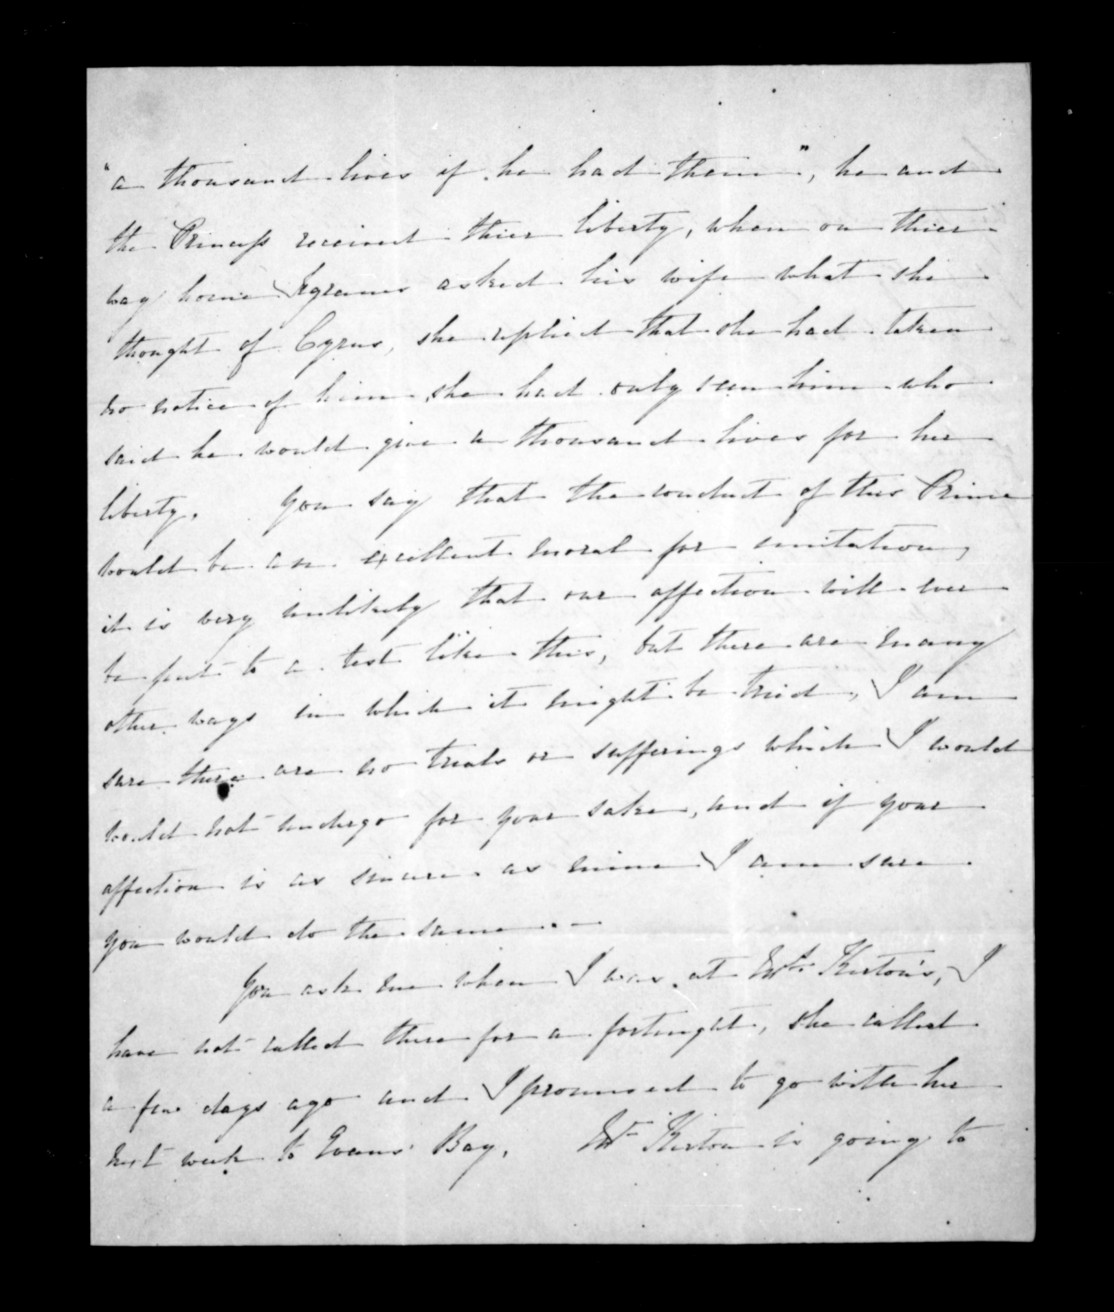 "a thousand lives if he had them", he and
the Princess received thier liberty, when on thier
way home Tygranes asked his wife what she
thought of Cyrus, she replied that she had taken
no notice of him she had only seen him who
said he would give a thousand lives for her
liberty. You say that the conduct of this Prince
would be an excellent moral for imitation,
it is very unlikely that our affection will ever
be put to a test like this, but there are many
other ways in which it might be tried, I am
sure there are no trials or sufferings which I would
would not undergo for your sake, and if your
affection is as sincere as mine I am sure
you would do the same. —
You ask me when I was at Mrs Kirton's, I
have not called there for a fortnight, she called
a few days ago and I promised to go with her
next week to Evans' Bay. Mr Kirton is going to